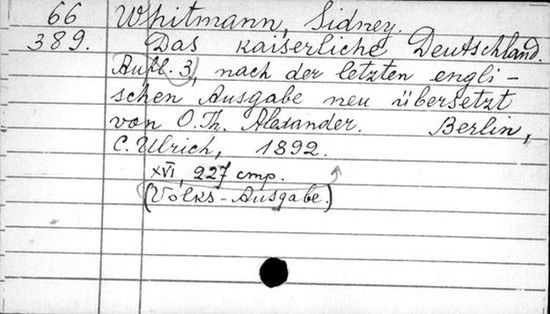 66 Whitmann, Sidney.
389. Das kaiserliche Deutschland.
Aufl. 3, nach der letzten engli-
schen Ausgabe neu übersetzt
von O. Th. Alexander. Berlin,
C. Ulrich, 1892.
XVI, 227 стр.
(Volks-Ausgabe.)